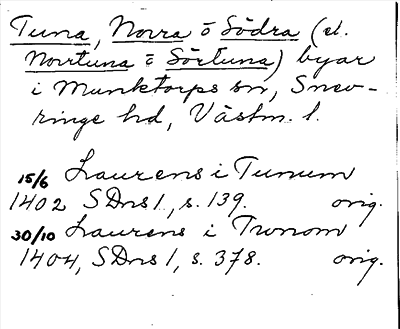 Tuna, Norra o Södra (el.
Norrtuna o Sörtuna) byar
i Munktorps sn, Snev-
ringe hd, Västm. l.
15/6 Laurens i Tunum
1402 SDns 1, s. 139. orig.
30/10 Laurens i Tunom
1404, SDns 1, s. 378. orig.